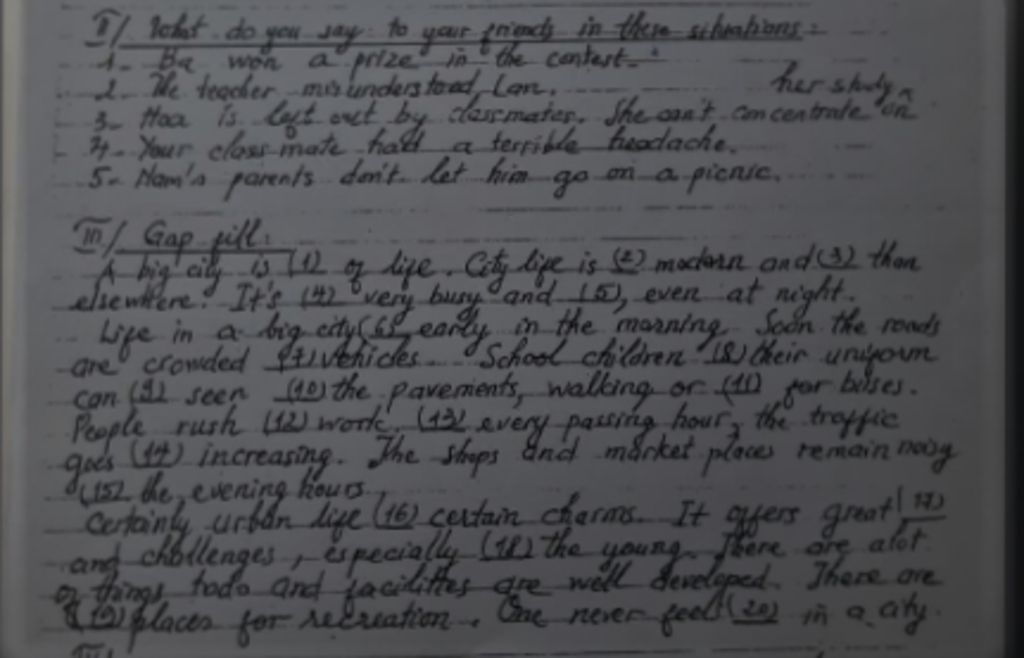 II/ What do you say to your friends in these situations:
1- Ba won a prize in the contest.
2- The teacher misunderstood Lan.
her study.
3- Hoa is left out by classmates. She can't concentrate on
4- Your classmate had a terrible headache.
5- Nam's parents don't let him go on a picnic.
III/ Gap fill:
A big city is (1) of life. City life is (2) modern and (3) than
elsewhere. It's (4) very busy and (5), even at night.
Life in a big city (6) early in the morning. Soon the roads
are crowded (7) vehicles. School children (8) their uniform
can (9) seen (10) the pavements, walking or (11) for buses.
People rush (12) work. (13) every passing hour, the traffic
goes (14) increasing. The shops and market places remain noisy
(15) the evening hours.
Certainly urban life (16) certain charms. It offers great (17)
and challenges, especially (18) the young. There are alot
of things todo and facilities are well developed. There are
(19) places for recreation. One never feel (20) in a city.